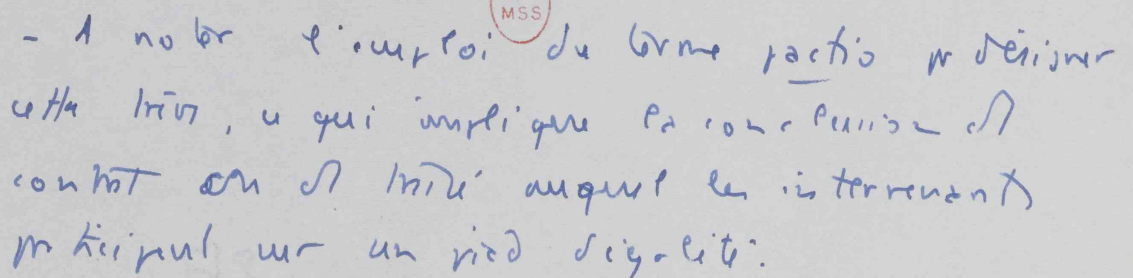 MSS
- A noter l'emploi du terme pactio pr désigner
cette trève, ce qui implique la conclusion d'1
contrat ou d'1 traité auquel les intervenants
participent sur un pied d'égalité.